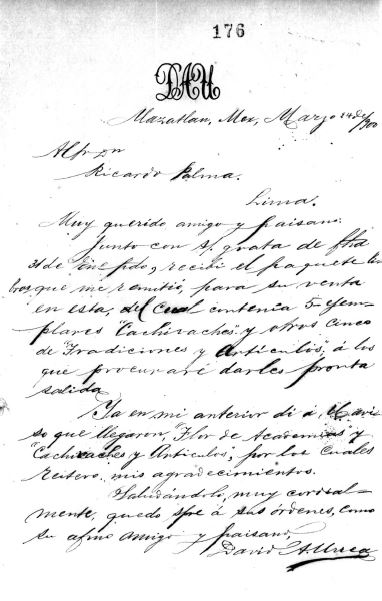 176
DAU
Mazatlan, Mex, Marzo 14 de 1900
Ricardo Palma.
Lima.
Muy querido amigo y paisano:
Junto con s/ grata de fhd
31 de Ene pdo, recibí el paquete li
bros, que me remitió, para su venta
en esta, del cual contenía 5 ejem-
plares "Cachivaches" y otros cinco
de "Tradiciones y Artículos", á los
que procuraré darles pronta
salida.
Ya en mi anterior di á U. avi
so que llegaron, "Flor de Academias" y
"Cachivaches y Artículos", por los cuales
reitero, mis agradecimientos.
Saludándolo, muy cordial-
mente, quedo spre á sus órdenes, como
su afmo amigo y paisano,
David A. Urrea